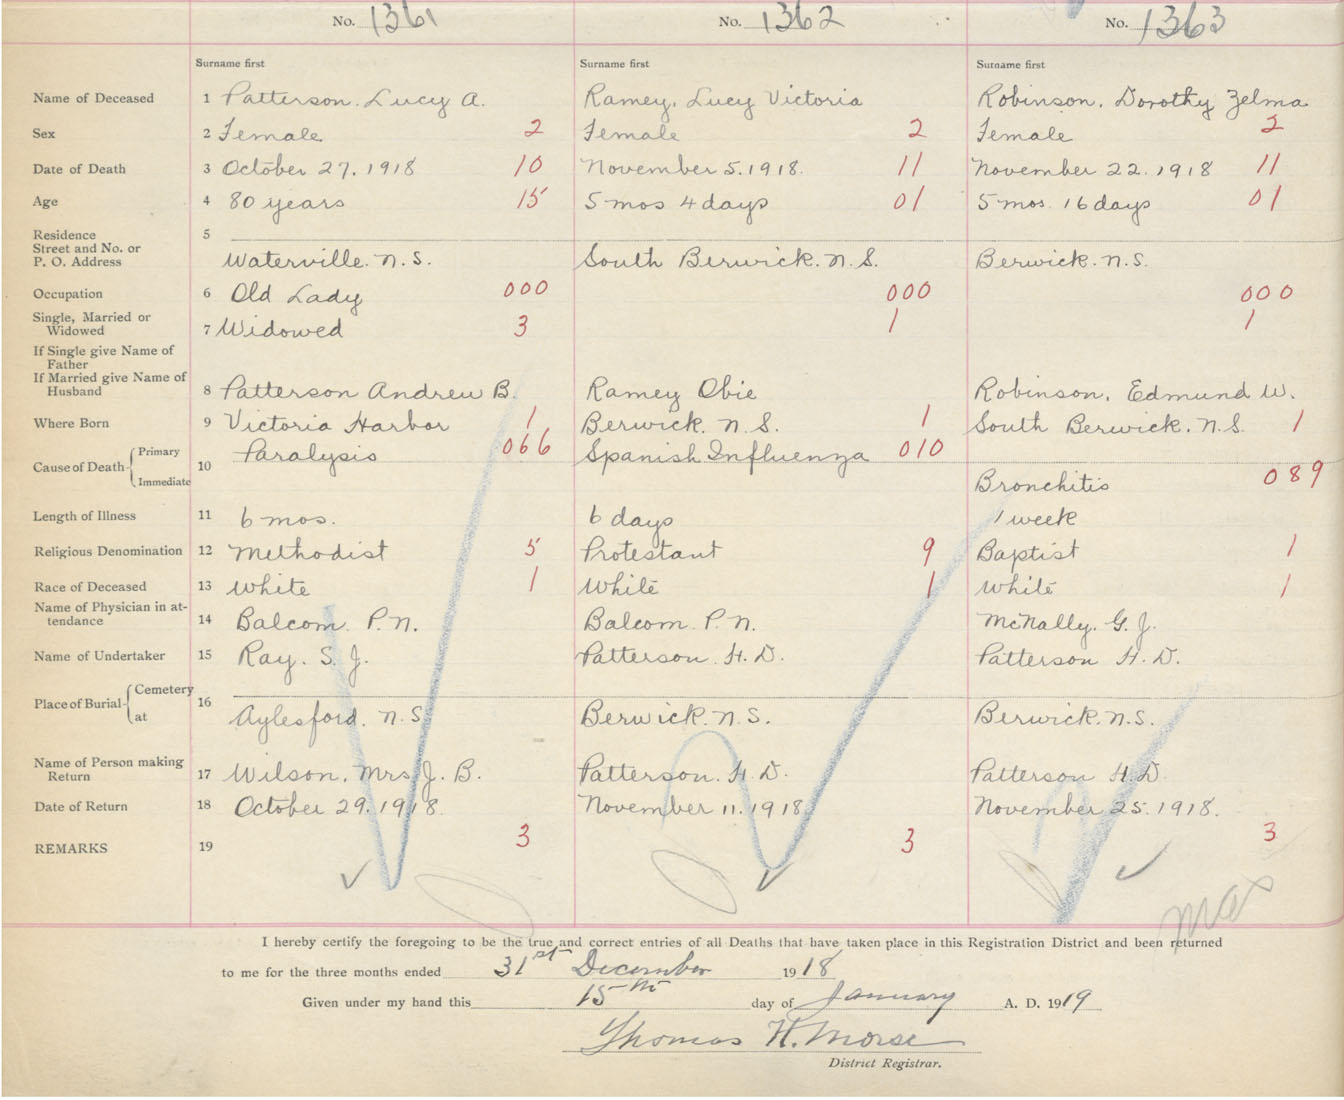 No. 1361 No. 1362 No. 1363
Surname first Surname first Surname first
Name of Deceased 1 Patterson. Lucy A. Ramey, Lucy Victoria Robinson, Dorothy Zelma
Sex 2 Female 2 Female 2 Female 2
Date of Death 3 October 27. 1918 10 November 5. 1918. 11 November 22. 1918 11
Age 4 80 years 15 5 mos 4 days 01 5 mos. 16 days 01
Residence 5
Street and No. or
P. O. Address Waterville. N.S. South Berwick. N.S. Berwick. N.S.
Occupation 6 Old Lady 000 000 000
Single, Married or
Widowed 7 Widowed 3 1 1
If Single give Name of
Father
If Married give Name of
Husband 8 Patterson Andrew B. Ramey Obie Robinson, Edmund W.
Where Born 9 Victoria Harbor 1 Berwick. N.S. 1 South Berwick. N.S. 1
Cause of Death Primary 10 Paralysis 066 Spanish Influenza 010
Immediate Bronchitis 089
Length of Illness 11 6 mos. 6 days 1 week
Religious Denomination 12 Methodist 5 Protestant 9 Baptist 1
Race of Deceased 13 White 1 White 1 White 1
Name of Physician in at-
tendance 14 Balcom. P. N. Balcom. P. N. McNally. G. J.
Name of Undertaker 15 Ray. S. J. Patterson. H. D. Patterson H. D.
Place of Burial Cemetery 16
at Aylesford. N.S. Berwick. N.S. Berwick. N.S.
Name of Person making
Return 17 Wilson, Mrs J. B. Patterson. H. D. Patterson H. D.
Date of Return 18 October 29. 1918. November 11. 1918 November 25. 1918.
REMARKS 19 3 3 3
I hereby certify the foregoing to be the true and correct entries of all Deaths that have taken place in this Registration District and been returned
to me for the three months ended 31st December 1918
Given under my hand this 15th day of January A. D. 1919
Thomas H. Morse
District Registrar.